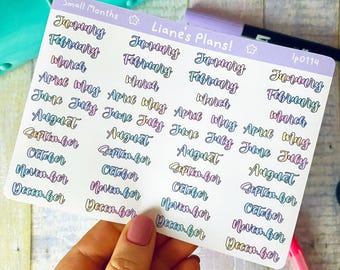 Small Months Liane's Plans! lp0114
January January
February February
March March
April May April May
June July June July
August August
September September
October October
November November
December December
January January
February February
March March
April May April May
June July June July
August August
September September
October October
November November
December December